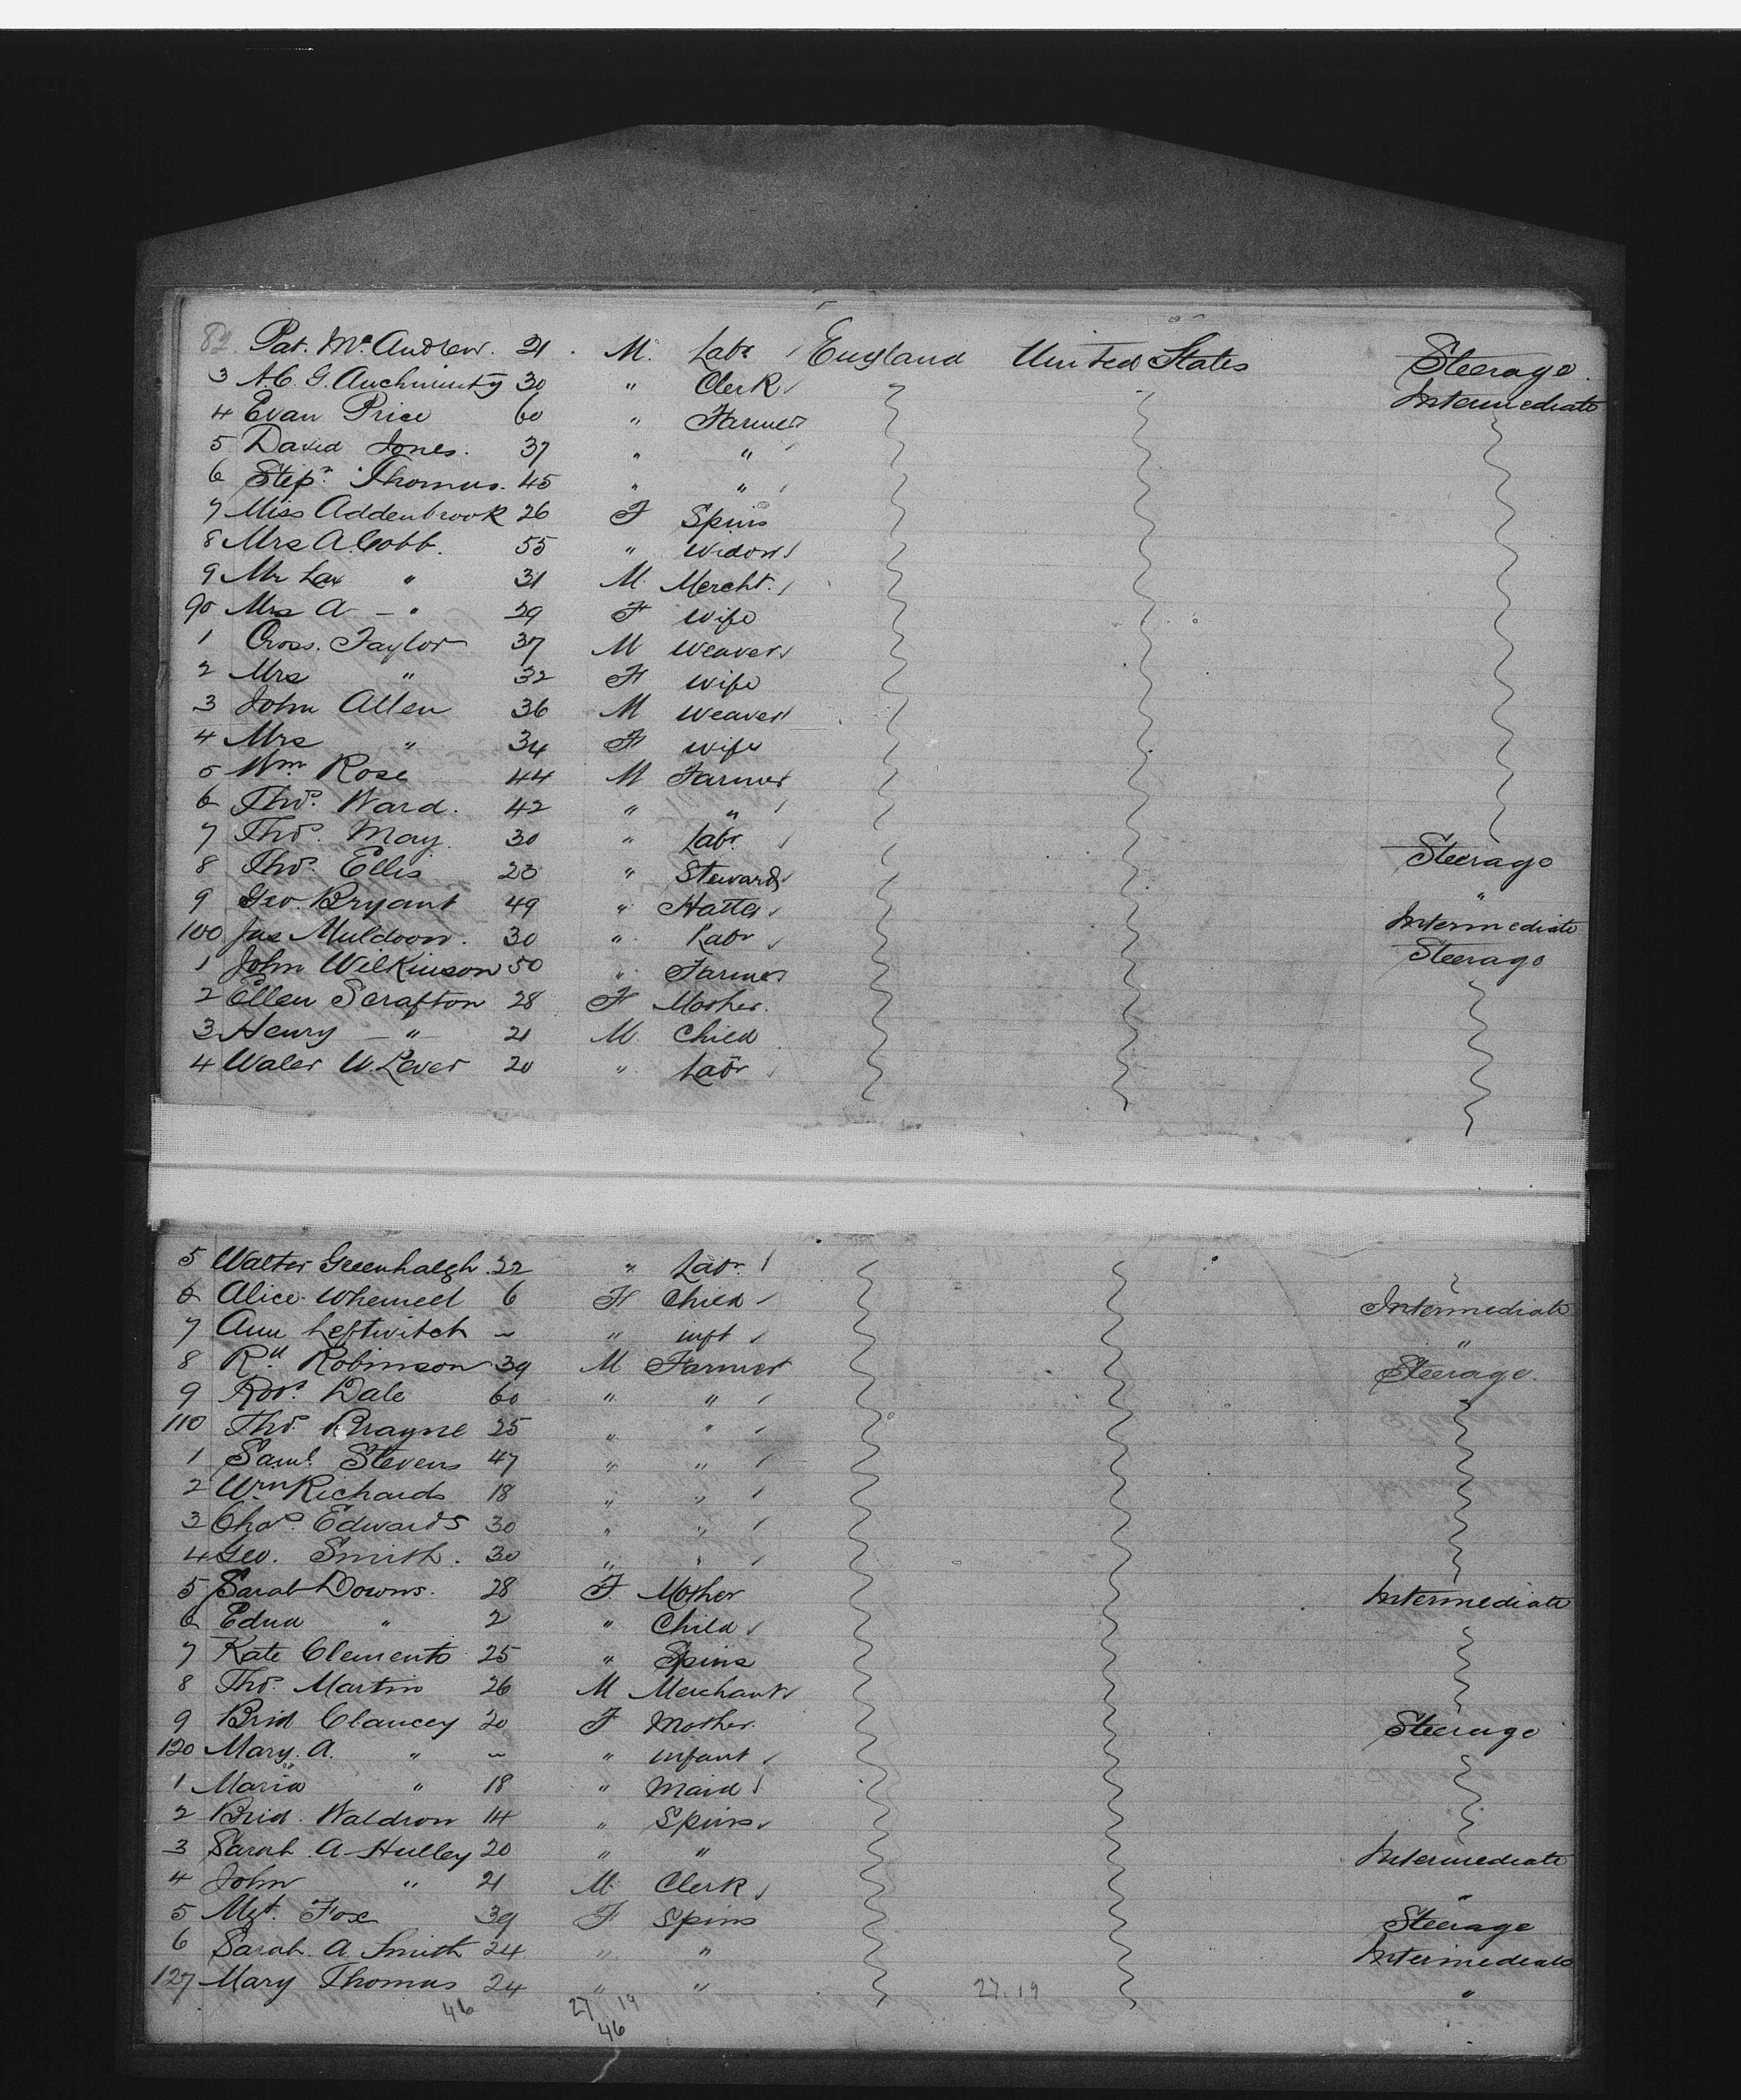 82 Pat. McAndrew. 21 M. Labr England United States Steerage.
3 A.C.G. Auchmuty 30 " Clerk Intermediate
4 Evan Price 60 " Farmer
5 David Jones. 37 " "
6 Stepn Thomas. 45 " "
7 Miss Addenbrook 26 F Spins
8 Mrs A. Cobb. 55 " Widow
9 Mr " 31 M Mercht.
90 Mrs A - " 29 F Wife
1 Cross. Taylor 37 M Weaver
2 Mrs " 32 F Wife
3 John Allen 36 M Weaver
4 Mrs " 34 F Wife
5 Wm Rose 44 M Farmer
6 Thos. Ward. 42 " "
7 Thos. May. 30 " Labr. Steerage
8 Thos. Ellis 23 " Steward "
9 Geo. Bryant 49 " Hatter Intermediate
100 Jas Muldoon. 30 " Labr Steerage
1 John Wilkinson 50 " Farmer
2 Ellen Scrafton 28 F Mother.
3 Henry - " - 21 M Child
4 Waler W Lever 20 " Labr
5 Walter Greenhalgh. 22 " Labr.
6 Alice 6 F Child Intermediate
7 Ann Leftwitch ~ " inft "
8 Rd Robinson 39 M Farmer Steerage.
9 Robt. Dale 60 " " "
110 Thos. Brayne 25 " "
1 Saml. Stevens 47 " "
2 Wm Richards 18 " "
3 Chas. Edwards 30 " "
4 Geo. Smith. 30 " "
5 Sarah Downs. 28 F. Mother Intermediate
6 Edna " 2 " Child
7 Kate Clements 25 " Spins
8 Thos. Martin 26 M Merchant
9 Brid Clancey 20 F Mother. Steerage
120 Mary. A. " ~ " infant
1 Maria " 18 " Maid
2 Brid. Waldron 14 " Spins
3 Sarah. A Hulley 20 " " Intermediate
4 John " 21 M. Clerk "
5 Mgt. Fox 39 F Spins Steerage
6 Sarah. A Smith 24 " " Intermediate
127 Mary Thomas 24 " " 27.19 "
46 27 19
46